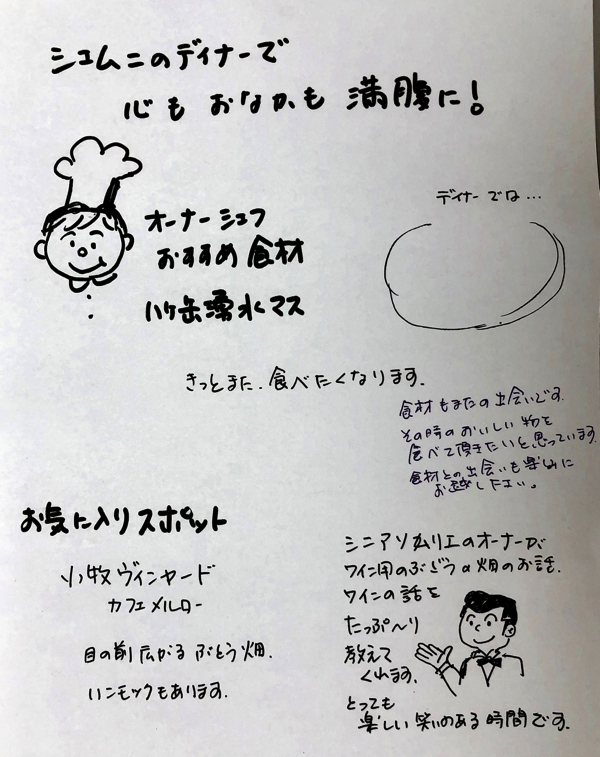 シエムニのディナーで
心も おなかも 満腹に!
オーナーシェフ
おすすめ食材
八ヶ岳湧水マス
ディナーでは…
きっとまた、食べたくなります。
食材もまたの出会いです。
その時のおいしい物を
食べて頂きたいと思っています
食材との出会いも楽しみに
お越し下さい。
お気に入りスポット
小牧ヴィンヤード
カフェメルロー
目の前広がるぶどう畑。
ハンモックもあります。
シニアソムリエのオーナーが
ワイン用のぶどうの畑のお話。
ワインの話を
たっぷ〜り
教えて
くれます。
とっても
楽しい笑いのある時間です。